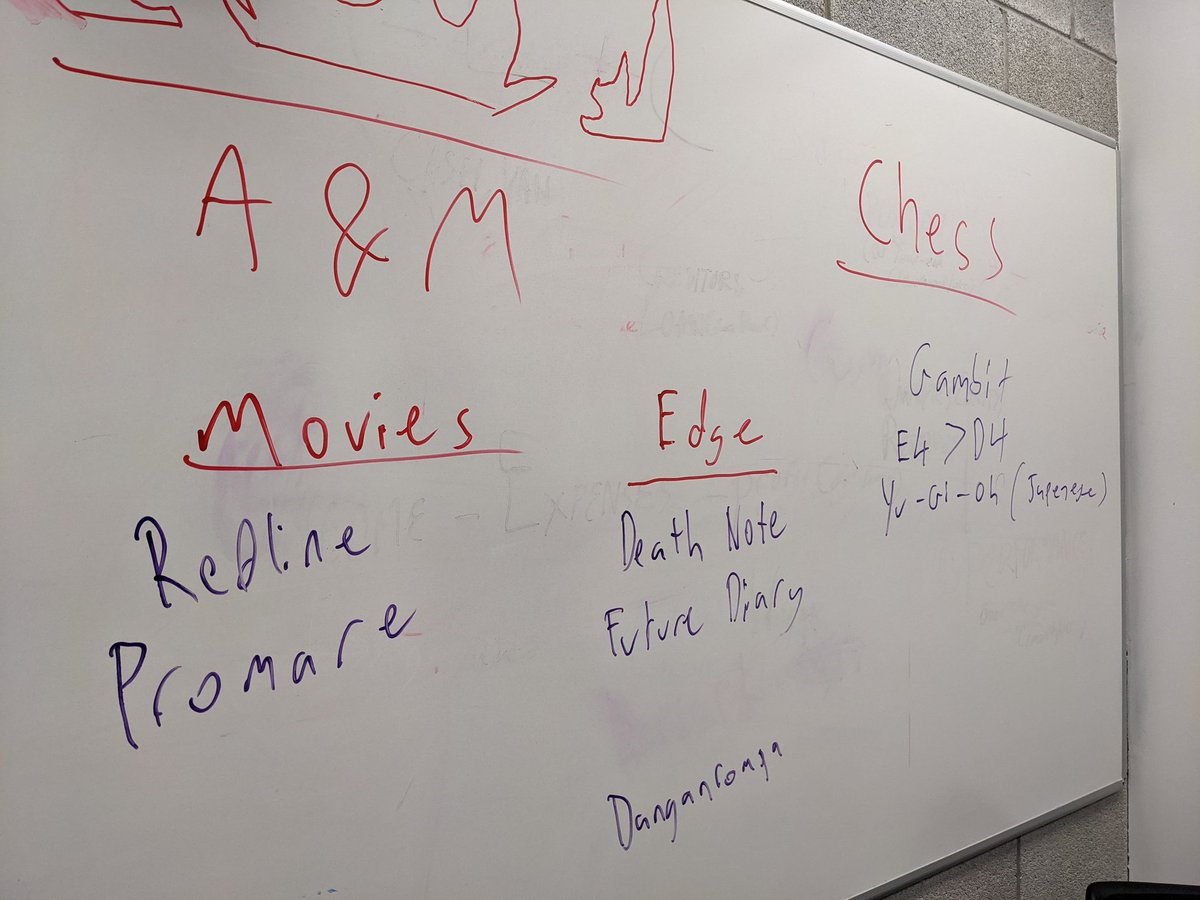 A & M
Chess
Movies
Edge
Redline
Promare
Death Note
Future Diary
Danganronpa
Gambit
E4 > D4
Yu-Gi-Oh (Japenese)